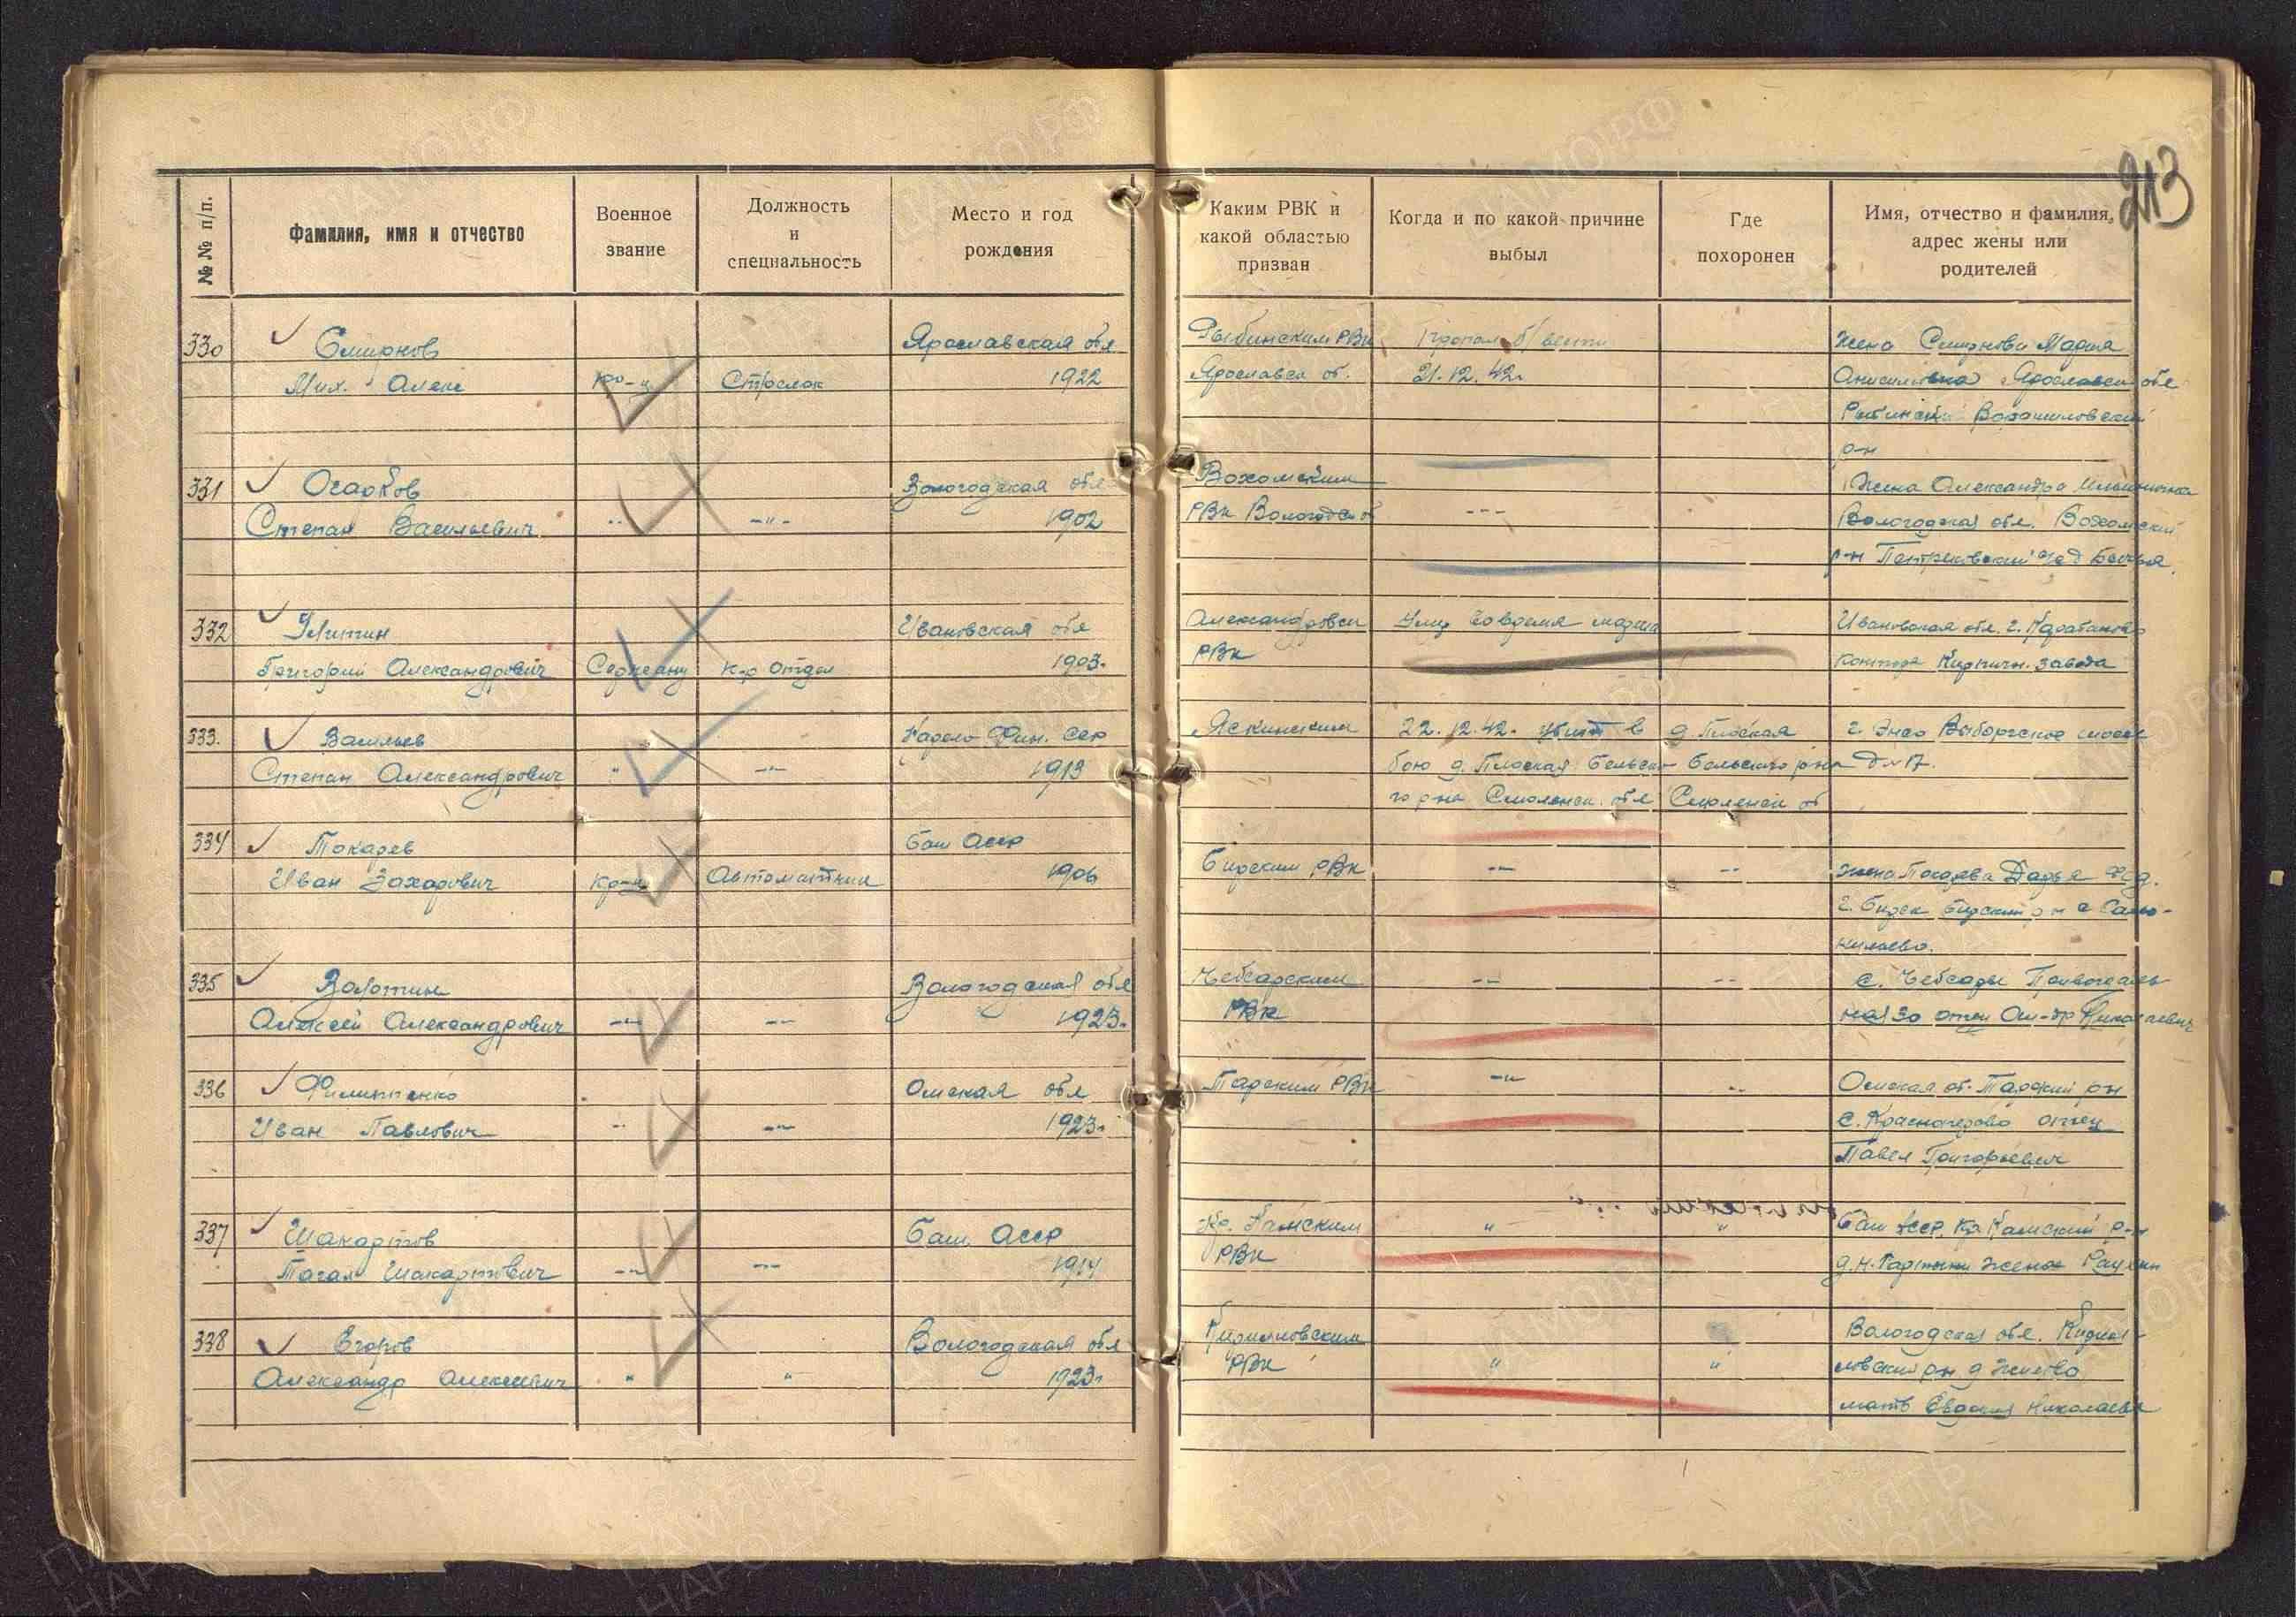 213
№№ п/п.
Фамилия, имя и отчество
Военное звание
Должность и специальность
Место и год рождения
Каким РВК и какой областью призван
Когда и по какой причине выбыл
Где похоронен
Имя, отчество и фамилия, адрес жены или родителей
330 Смирнов Ярославская обл Рыбинским РВК Пропал б/вести жена Смирнова Мария
Мих. Алекс кр-ц Стрелок 1922 Ярославск об. 21.12.42. Анисимовна Ярославск обл
Рыбинский Ворошиловский
р-н
331 Огарков Вологодская обл Вохомским Жена Александра Ильинична
Степан Васильевич -"- 1902 РВК Вологодск об --- Вологодская обл. Вохомский
р-н Петрецовский с/с д
332 Улитин Ивановская обл Александровск Умер во время марша Ивановская обл. г. Карабаново
Григорий Александрович Сержант к-р отдел 1903. РВК контора Кирпичн. завода
333. Васильев Карело Фин. сср Яскинским 22.12.42. убит в д. Плоская г. Энсо Выборгское шоссе
Степан Александрович " -"- 1913 бою д. Плоская Бельско- Бельского р-на д № 17.
го р-на Смоленск. обл Смоленск об
334 Токарев Баш Асср
Иван Захарович кр-ц Автоматчик 1906 Бирским РВК -"- -"- жена Токарева Дарья Фед.
г. Бирск Бирский р-н с
335 Золотин Вологодская обл Чебсарским -"- -"- с. Чебсары
Алексей Александрович -"- -"- 1923. РВК 30 отец Ал-др Николаевич
336 Филиппенко Омская обл Тарским РВК -"- -"- Омская об. Тарский рн
Иван Павлович -"- -"- 1923. с. Красноперово отец
Павел Григорьевич
337 Шакартов Баш Асср Кр. Камским " " Баш Асср. Кр Камский р-н
Тагал Шакартович -"- -"- 1914 РВК жена
338 Егоров Вологодская обл Кирилловским Вологодская обл. Кирил-
Александр Алексеевич " " 1923. РВК " " ловский рн д
мать Евдокия Николаевна
ПАМЯТЬ НАРОДА
ЦАМО.РФ